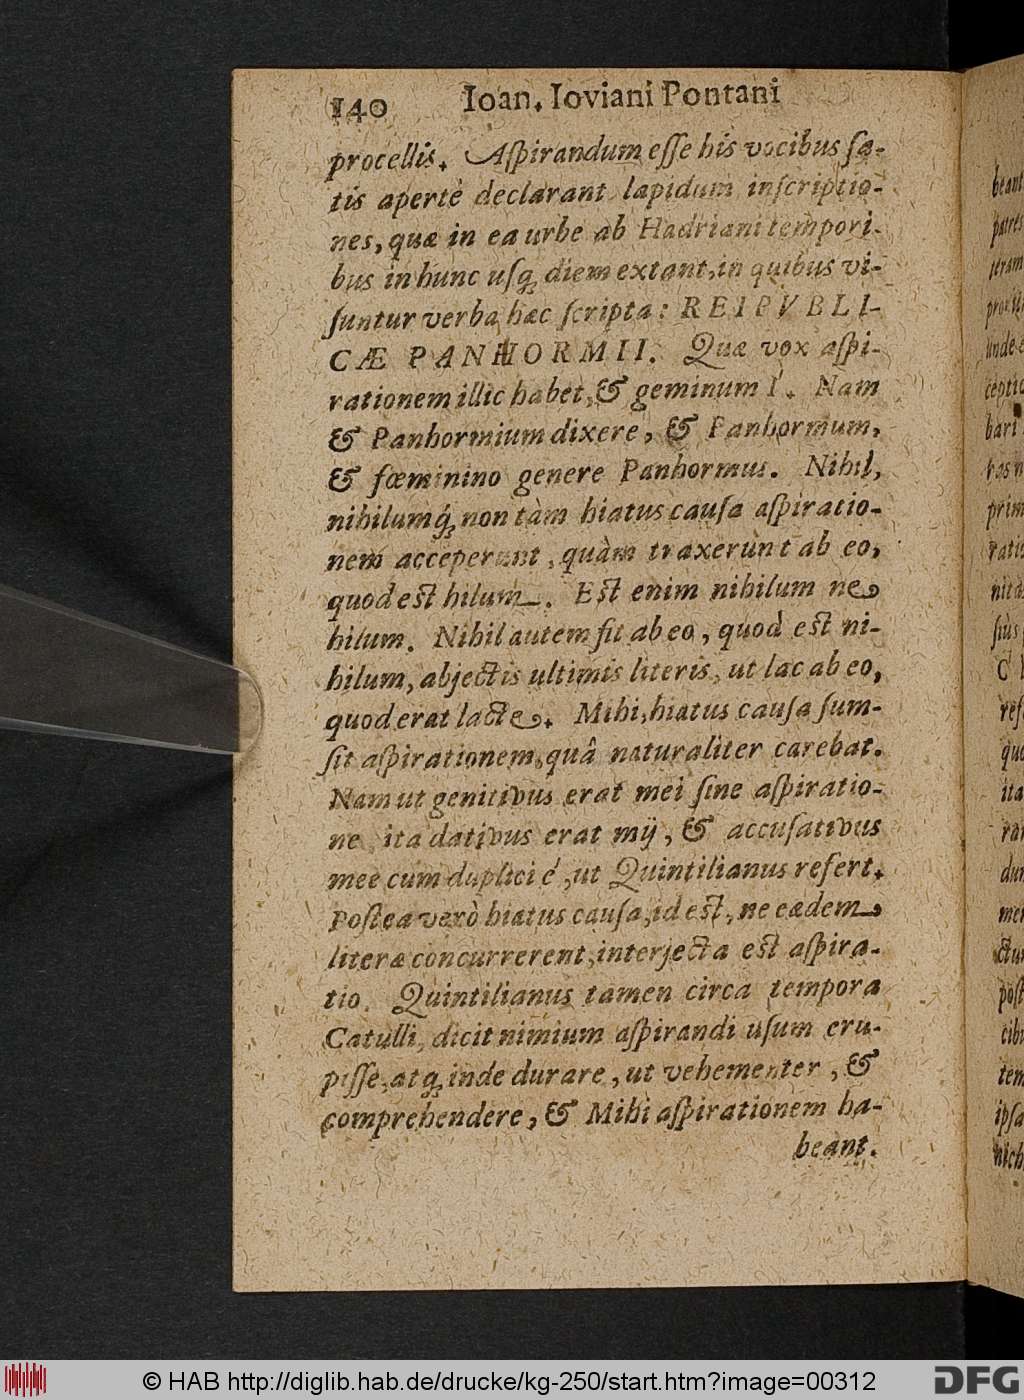 140 Ioan. Ioviani Pontani
procellis. Aſpirandum eſſe his vocibus ſa-
tis apertè declarant lapidum inſcriptio-
nes, quæ in ea urbe ab Hadriani tempori-
bus in hunc uſq; diem extant, in quibus vi-
ſuntur verba hæc ſcripta: REIPVBLI-
CÆ PANHORMII. Quæ vox aſpi-
rationem illic habet, & geminum I. Nam
& Panhormium dixere, & Panhormum,
& fœminino genere Panhormus. Nihil,
nihilumq́; non tàm hiatus cauſa aſpiratio-
nem acceperunt, quàm traxerunt ab eo,
quod est hilum. Est enim nihilum ne
hilum. Nihil autem fit ab eo, quod est ni-
hilum, abjectis ultimis literis, ut lac ab eo,
quod erat lacte. Mihi, hiatus cauſa ſum-
ſit aſpirationem, quâ naturaliter carebat.
Nam ut genitivus erat mei ſine aſpiratio-
ne ita dativus erat mij, & accuſativus
mee cum duplici é, ut Quintilianus refert.
Poſtea verò hiatus cauſa, id est, ne eædem
literæ concurrerent, interjecta est aſpira-
tio. Quintilianus tamen circa tempora
Catulli, dicit nimium aſpirandi uſum eru-
piſſe, atq; inde durare, ut vehementer, &
comprehendere, & Mihi aſpirationem ha-
beant.
© HAB http://diglib.hab.de/drucke/kg-250/start.htm?image=00312
DFG